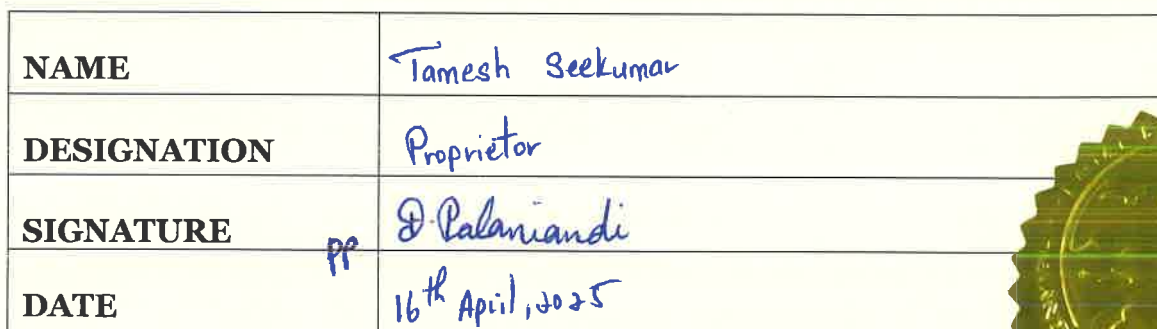 NAME Tamesh Seekumar
DESIGNATION Proprietor
SIGNATURE PP D. Palaniandi
DATE 16th April, 2025